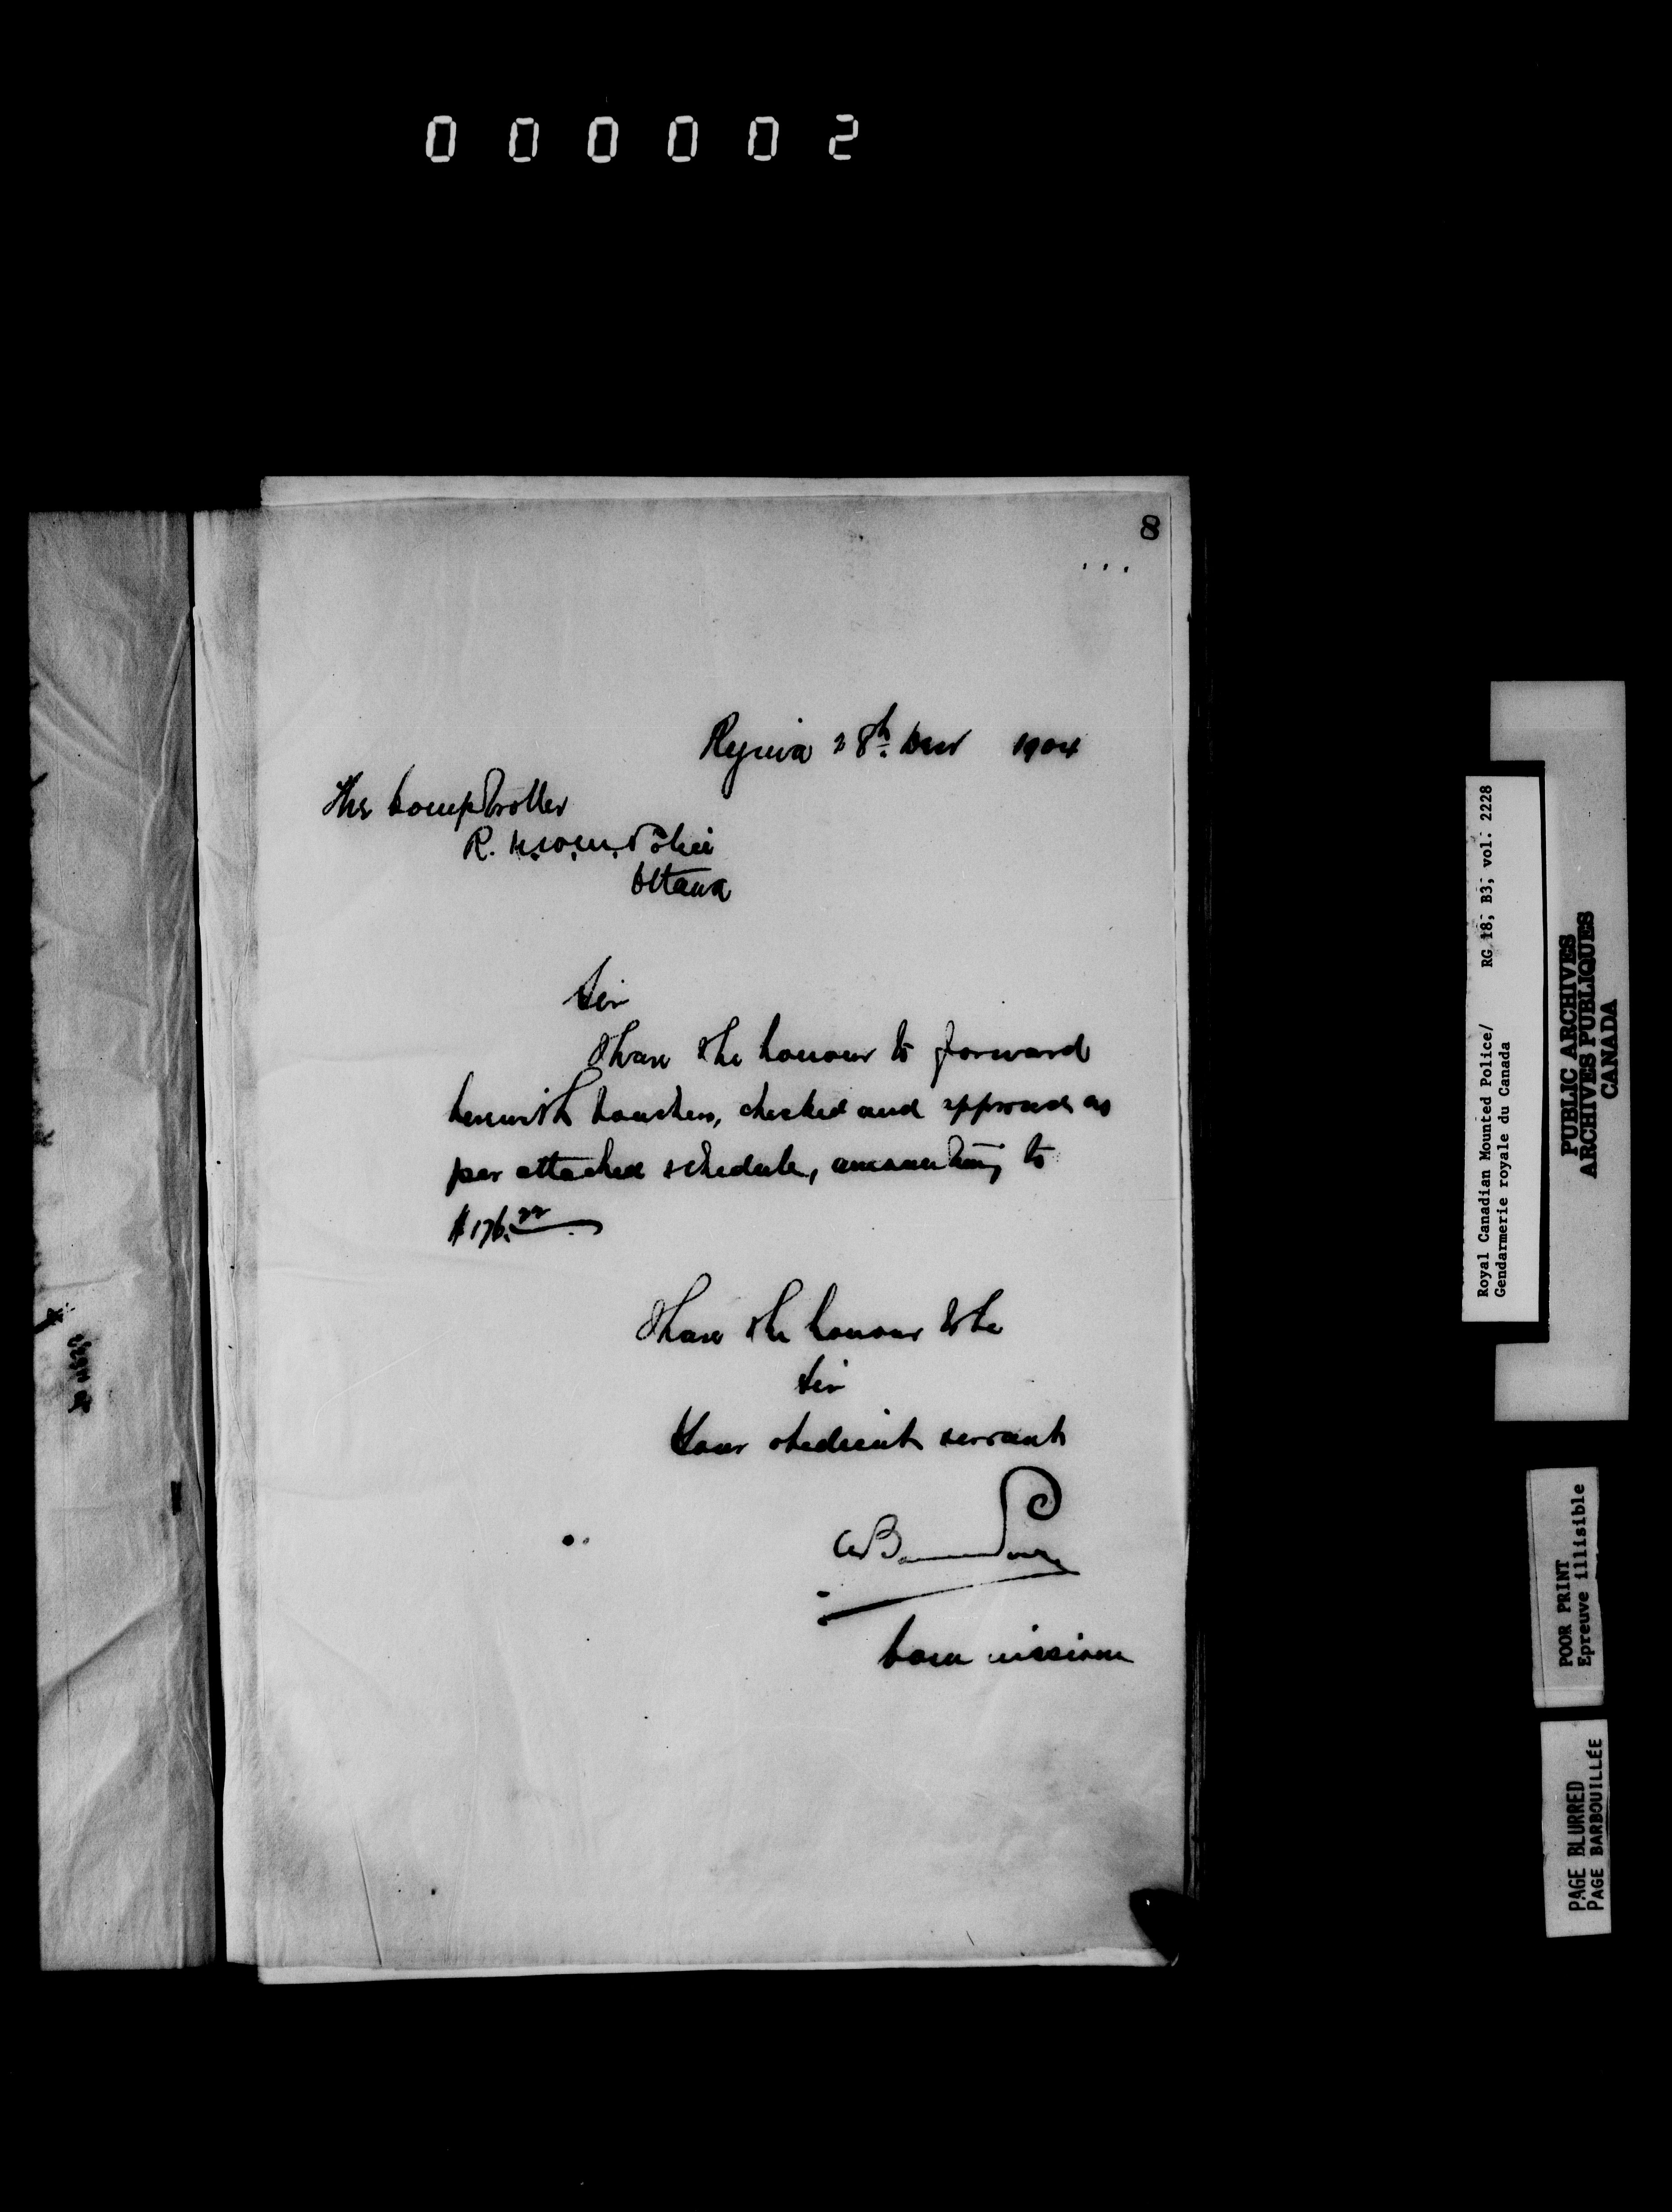 000002
8
Regina 28th Decr 1904
The Comptroller
R. N.W.M. Police
Ottawa
Sir
I have the honour to forward
herewith vouchers, checked and approved as
per attached schedule, amounting to
$176.22
I have the honour to be
Sir
Your obedient servant
Commissioner
Royal Canadian Mounted Police/ RG 18, B3, vol. 2228
Gendarmerie royale du Canada
PUBLIC ARCHIVES
ARCHIVES PUBLIQUES
CANADA
POOR PRINT
Epreuve illisible
PAGE BLURRED
PAGE BARBOUILLÉE